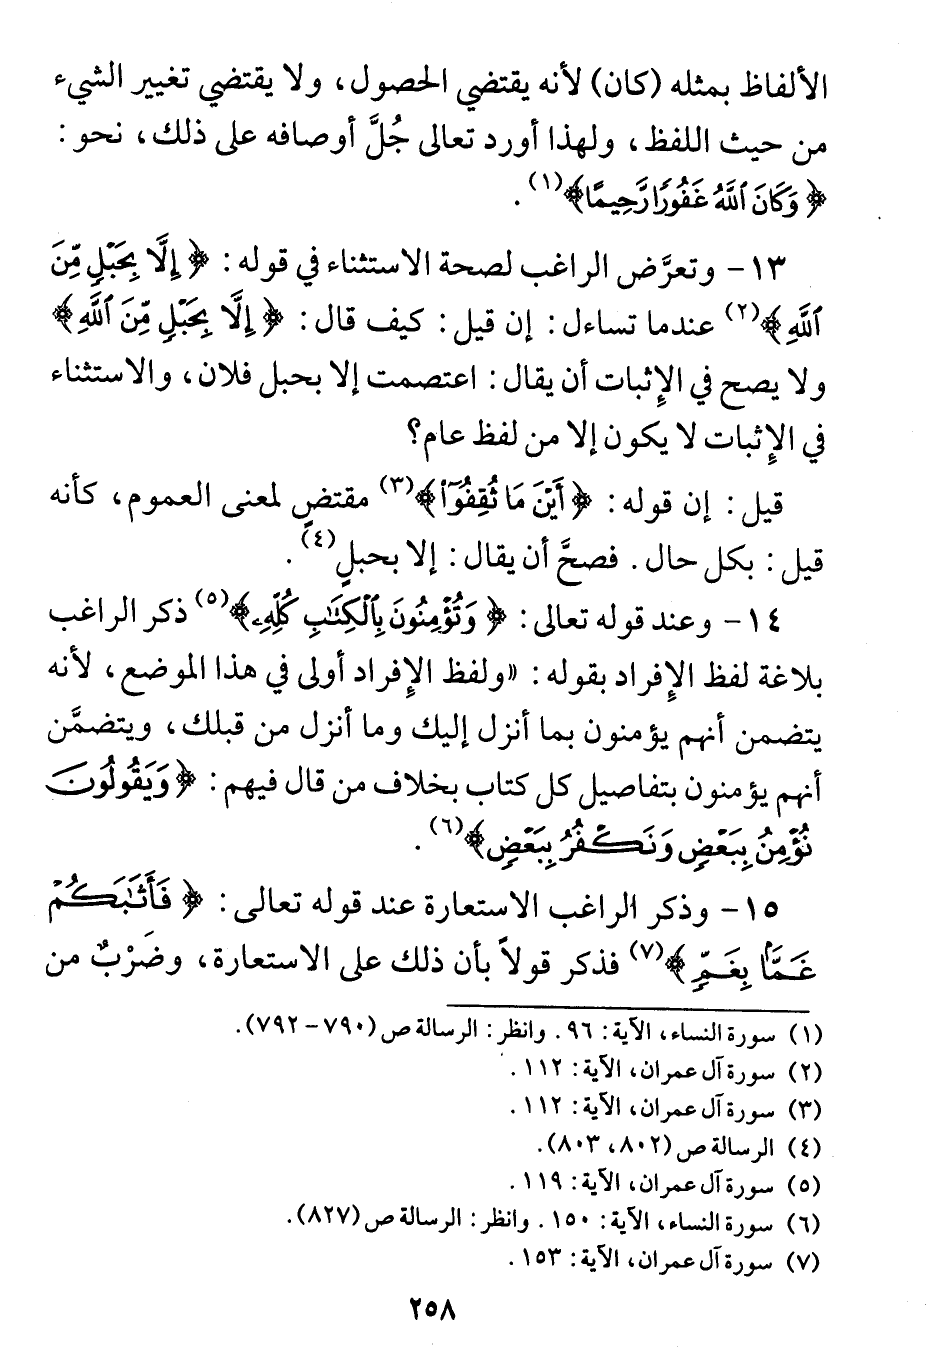 الألفاظ بمثله (كان) لأنه يقتضي الحصول، ولا يقتضي تغيير الشيء
من حيث اللفظ، ولهذا أورد تعالى جُلَّ أوصافه على ذلك، نحو:
﴿وَكَانَ ٱللَّهُ غَفُورًا رَّحِيمًا﴾(١).
١٣- وتعرَّض الراغب لصحة الاستثناء في قوله: ﴿إِلَّا بِحَبْلٍ مِّنَ
ٱللَّهِ﴾(٢) عندما تساءل: إن قيل: كيف قال: ﴿إِلَّا بِحَبْلٍ مِّنَ ٱللَّهِ﴾
ولا يصح في الإثبات أن يقال: اعتصمت إلا بحبل فلان، والاستثناء
في الإثبات لا يكون إلا من لفظ عام؟
قيل: إن قوله: ﴿أَيْنَ مَا ثُقِفُوٓا۟﴾(٣) مقتضٍ لمعنى العموم، كأنه
قيل: بكل حال. فصحَّ أن يقال: إلا بحبلٍ(٤).
١٤- وعند قوله تعالى: ﴿وَتُؤْمِنُونَ بِٱلْكِتَٰبِ كُلِّهِۦ﴾(٥) ذكر الراغب
بلاغة لفظ الإفراد بقوله: «ولفظ الإفراد أولى في هذا الموضع، لأنه
يتضمن أنهم يؤمنون بما أنزل إليك وما أنزل من قبلك، ويتضمَّن
أنهم يؤمنون بتفاصيل كل كتاب بخلاف من قال فيهم: ﴿وَيَقُولُونَ
نُؤْمِنُ بِبَعْضٍ وَنَكْفُرُ بِبَعْضٍ﴾(٦).
١٥- وذكر الراغب الاستعارة عند قوله تعالى: ﴿فَأَثَٰبَكُمْ
غَمًّۢا بِغَمٍّ﴾(٧) فذكر قولاً بأن ذلك على الاستعارة، وضَرْبٌ من
(١) سورة النساء، الآية: ٩٦. وانظر: الرسالة ص (٧٩٠-٧٩٢).
(٢) سورة آل عمران، الآية: ١١٢.
(٣) سورة آل عمران، الآية: ١١٢.
(٤) الرسالة ص (٨٠٢، ٨٠٣).
(٥) سورة آل عمران، الآية: ١١٩.
(٦) سورة النساء، الآية: ١٥٠. وانظر: الرسالة ص (٨٢٧).
(٧) سورة آل عمران، الآية: ١٥٣.
٢٥٨